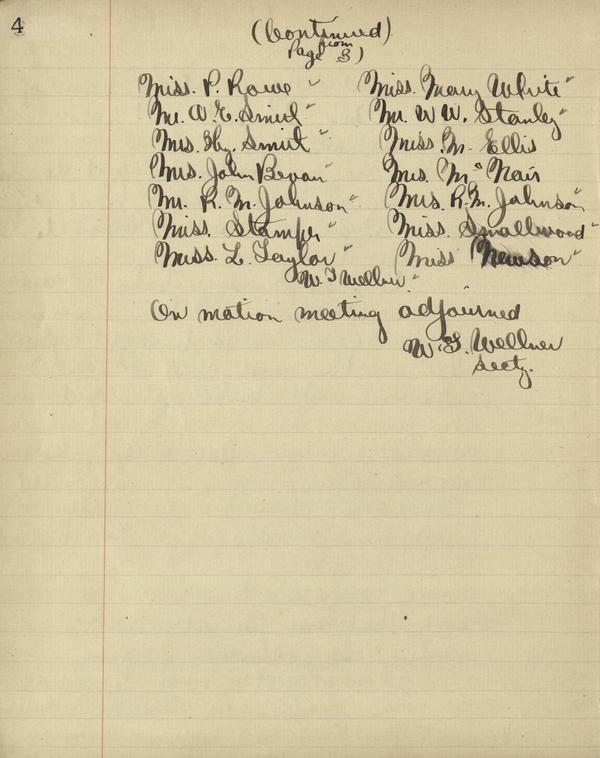 4
(Continued
from
Page 3)
Miss. P. Rowe " Miss. Mary White "
Mr. A. E. Smith " Mr. W W. Stanley "
Mrs. Hy. Smith " Miss. M. Ellis
Mrs. John Bevan " Mrs. Mc Nair
Mr. R. M. Johnson " Mrs. R. M. Johnson "
Miss. Stamper " Miss. Smallwood "
Miss. L. Taylor " Miss Newson "
W. J Wellner "
On motion meeting adjourned
W. J. Wellner
Secty.